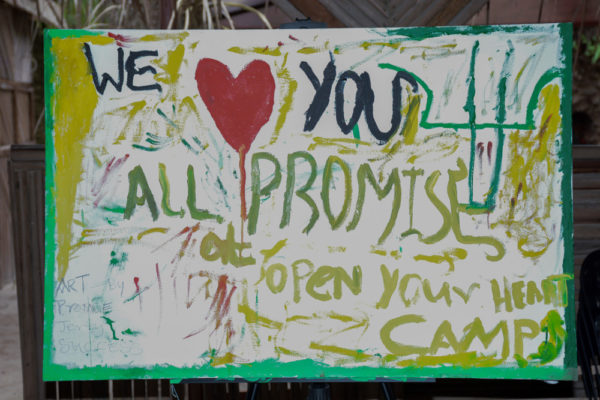 WE YOU
ALL PROMISE
at OPEN YOUR HEART
CAMP
ART by